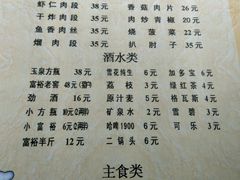 虾仁肉段 38元 香菇肉片 26元
干炸肉段 35元 肉炒青椒 20元
鱼香肉丝 35元 烧菠菜 22元
熘肉段 35元 扒肘子 35元
酒水类
玉泉方瓶 38元 雪花纯生 6元 加多宝 6元
富裕老窖 48元 荔枝 3元 绿红茶 4元
劲酒 16元 原汁麦 5元 格瓦斯 4元
小方瓶 10元 矿泉水 2元 雪碧 3元
小富裕 6元 哈啤1900 6元 可乐 3元
富裕半斤 12元 二锅头 6元
主食类